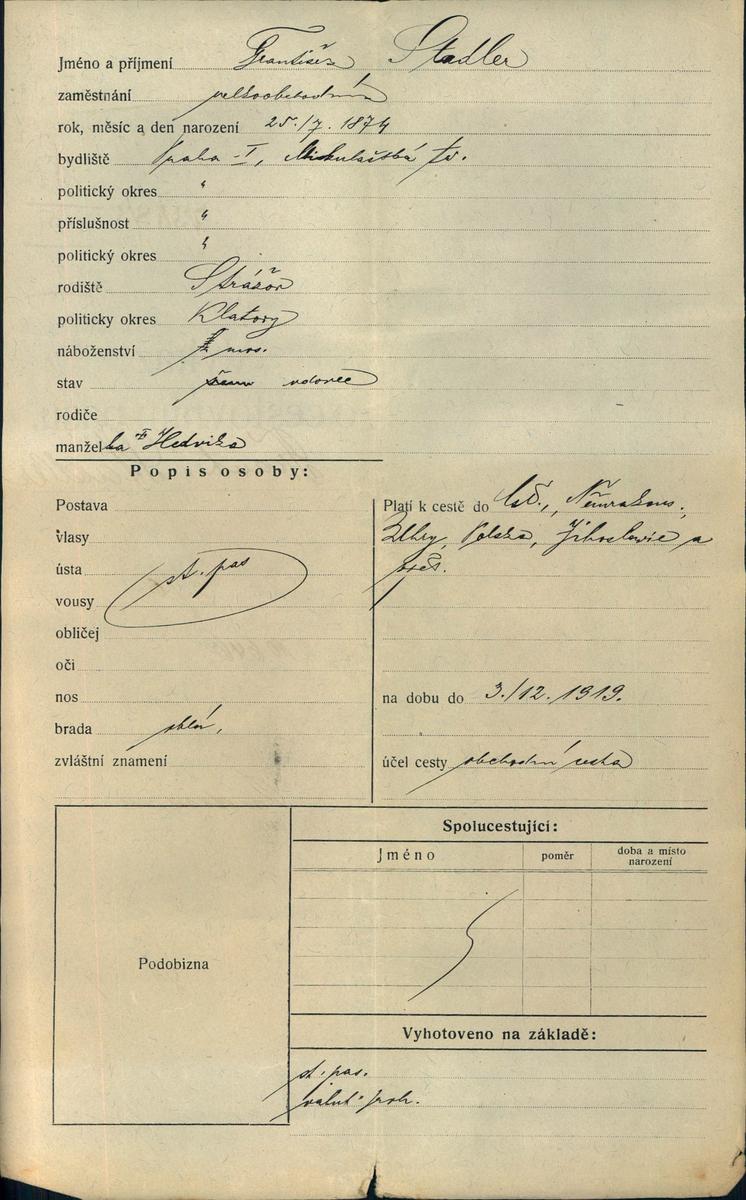 Jméno a příjmení František Stadler
zaměstnání velkoobchodník
rok, měsíc a den narození 25./7. 1874
bydliště Praha I, Mikulášská tř.
politický okres "
příslušnost "
politický okres "
rodiště Strážov
politicky okres Klatovy
náboženství mos.
stav vdovec
rodiče
manželka Hedvika
Popis osoby:
Postava
vlasy
ústa
st. pas
vousy
obličej
oči
nos
brada
zvláštní znamení
Platí k cestě do Čsl., Něm. Rakous.,
Uhry, Polska, Jihoslavie a
zpět.
na dobu do 3./12. 1919.
účel cesty obchodní cesta
Spolucestující:
Jméno poměr doba a místo
narození
Podobizna
Vyhotoveno na základě:
st. pas.